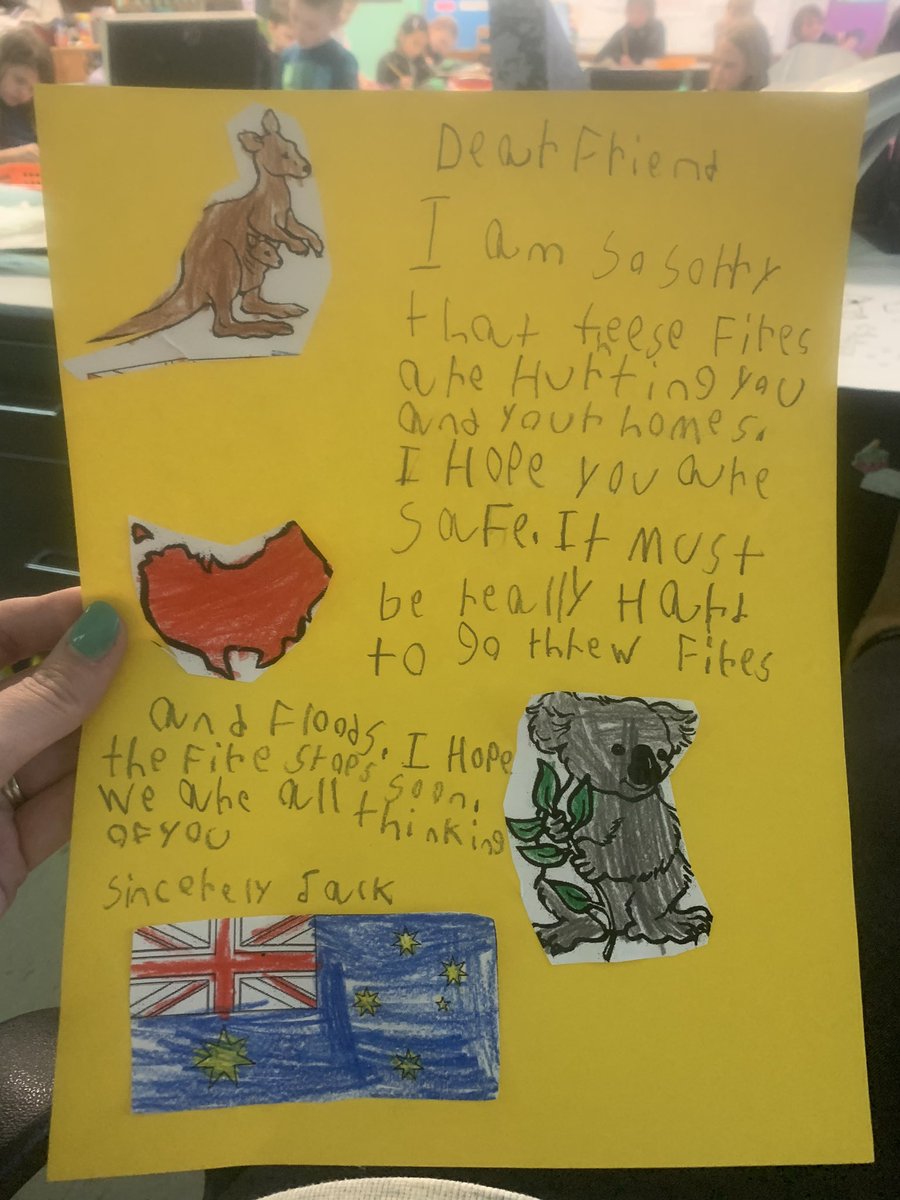 Dear Friend
I am so sorry
that theese Fires
are Hurting you
and your homes.
I Hope you are
saFe. It must
be really Hard
to go threw Fires
and Floods. I Hope
the Fire stops soon.
We are all thinking
oF you
Sincerely Jack